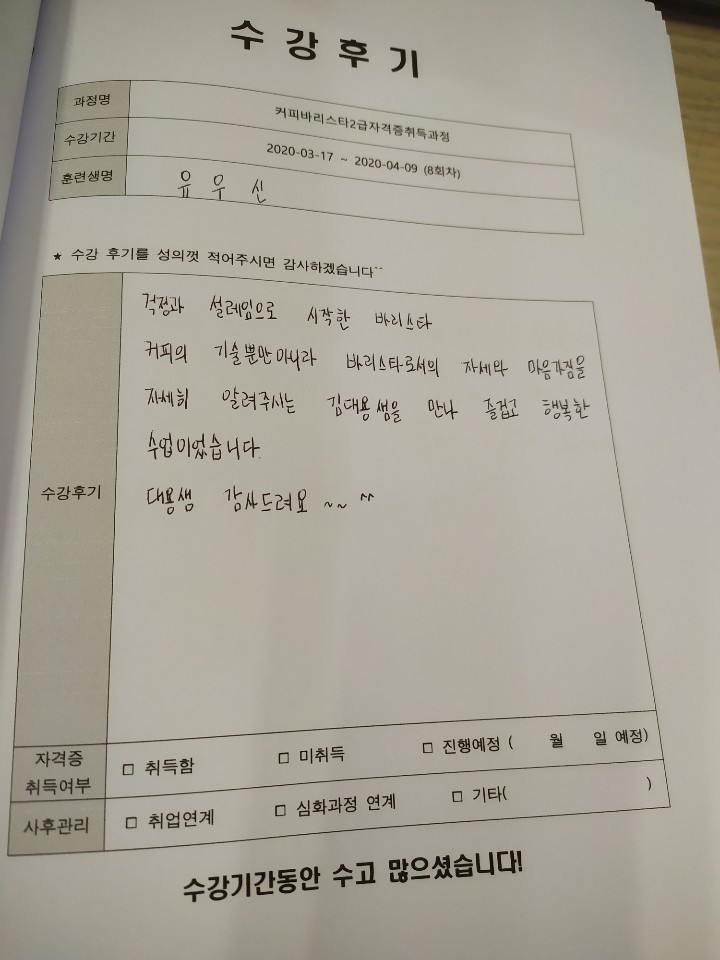 수강후기
과정명 커피바리스타2급자격증취득과정
수강기간 2020-03-17 ~ 2020-04-09 (8회차)
훈련생명 유우신
★ 수강 후기를 성의껏 적어주시면 감사하겠습니다^^
걱정과 설레임으로 시작한 바리스타
커피의 기술뿐만아니라 바리스타로서의 자세와 마음가짐을
자세히 알려주시는 김대용샘을 만나 즐겁고 행복한
수업이었습니다.
수강후기
대용샘 감사드려요 ~~ ^^
자격증
취득여부
□ 취득함 □ 미취득 □ 진행예정 ( 월 일 예정)
사후관리 □ 취업연계 □ 심화과정 연계 □ 기타( )
수강기간동안 수고 많으셨습니다!